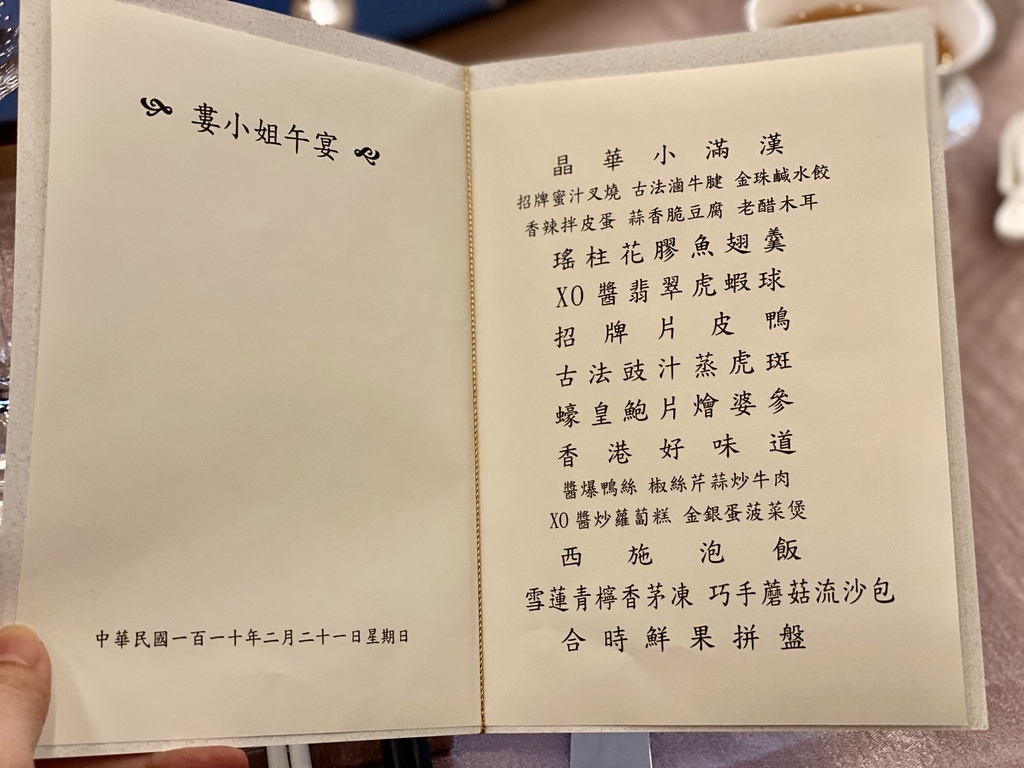 婁小姐午宴
中華民國一百一十年二月二十一日星期日
晶華小滿漢
招牌蜜汁叉燒 古法滷牛腱 金珠鹹水餃
香辣拌皮蛋 蒜香脆豆腐 老醋木耳
瑤柱花膠魚翅羹
XO醬翡翠虎蝦球
招牌片皮鴨
古法豉汁蒸虎斑
蠔皇鮑片燴婆參
香港好味道
醬爆鴨絲 椒絲芹蒜炒牛肉
XO醬炒蘿蔔糕 金銀蛋菠菜煲
西施泡飯
雪蓮青檸香茅凍 巧手蘑菇流沙包
合時鮮果拼盤